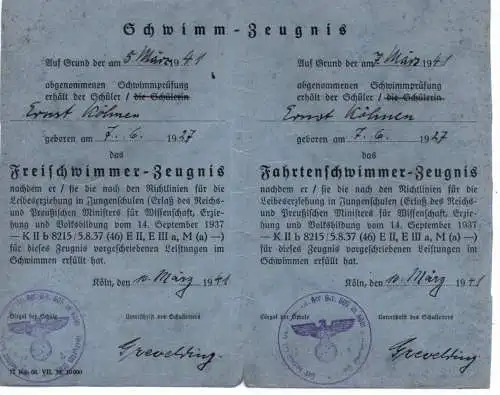 Schwimm-Zeugnis
Auf Grund der am 5 März 1941
abgenommenen Schwimmprüfung
erhält der Schüler / die Schülerin
Ernst Köhnen
geboren am 7. 6. 1927
das
Freischwimmer-Zeugnis
nachdem er / sie die nach den Richtlinien für die
Leibeserziehung in Jungenschulen (Erlaß des Reichs-
und Preußischen Ministers für Wissenschaft, Erzie-
hung und Volksbildung vom 14. September 1937
— K II b 8215/5.8.37 (46) E II, E III a, M (a) —)
für dieses Zeugnis vorgeschriebenen Leistungen im
Schwimmen erfüllt hat.
Köln, den 10 März 1941
Siegel der Schule
Unterschrift des Schulleiters
Grevelding
Auf Grund der am 7 März 1941
abgenommenen Schwimmprüfung
erhält der Schüler / die Schülerin
Ernst Köhnen
geboren am 7. 6. 1927
das
Fahrtenschwimmer-Zeugnis
nachdem er / sie die nach den Richtlinien für die
Leibeserziehung in Jungenschulen (Erlaß des Reichs-
und Preußischen Ministers für Wissenschaft, Erzie-
hung und Volksbildung vom 14. September 1937
— K II b 8215/5.8.37 (46) E II, E III a, M (a) —)
für dieses Zeugnis vorgeschriebenen Leistungen im
Schwimmen erfüllt hat.
Köln, den 10. März 1941
Siegel der Schule
Unterschrift des Schulleiters
Grevelding.